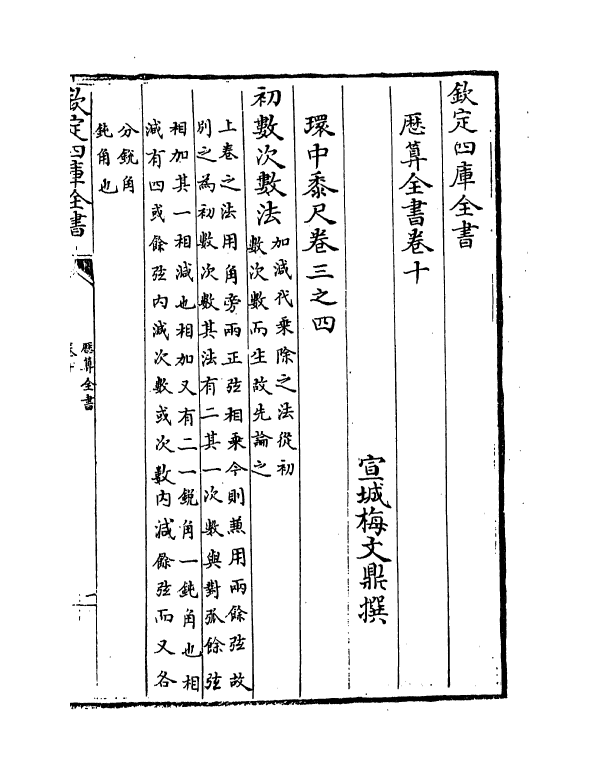 欽定四庫全書
厯算全書卷十
宣城梅文鼎撰
環中黍尺卷三之四
初數次數法
加減代乗除之法從初
數次數而生故先論之
上卷之法用角旁兩正弦相乗今則兼用兩餘弦故
别之為初數次數其法有二其一次數與對弧餘弦
相加其一相減也相加又有二一鋭角一鈍角也相
減有四或餘弦内減次數或次數内減餘弦而又各
分鋭角
鈍角也
欽定四庫全書
厯算全書
卷十